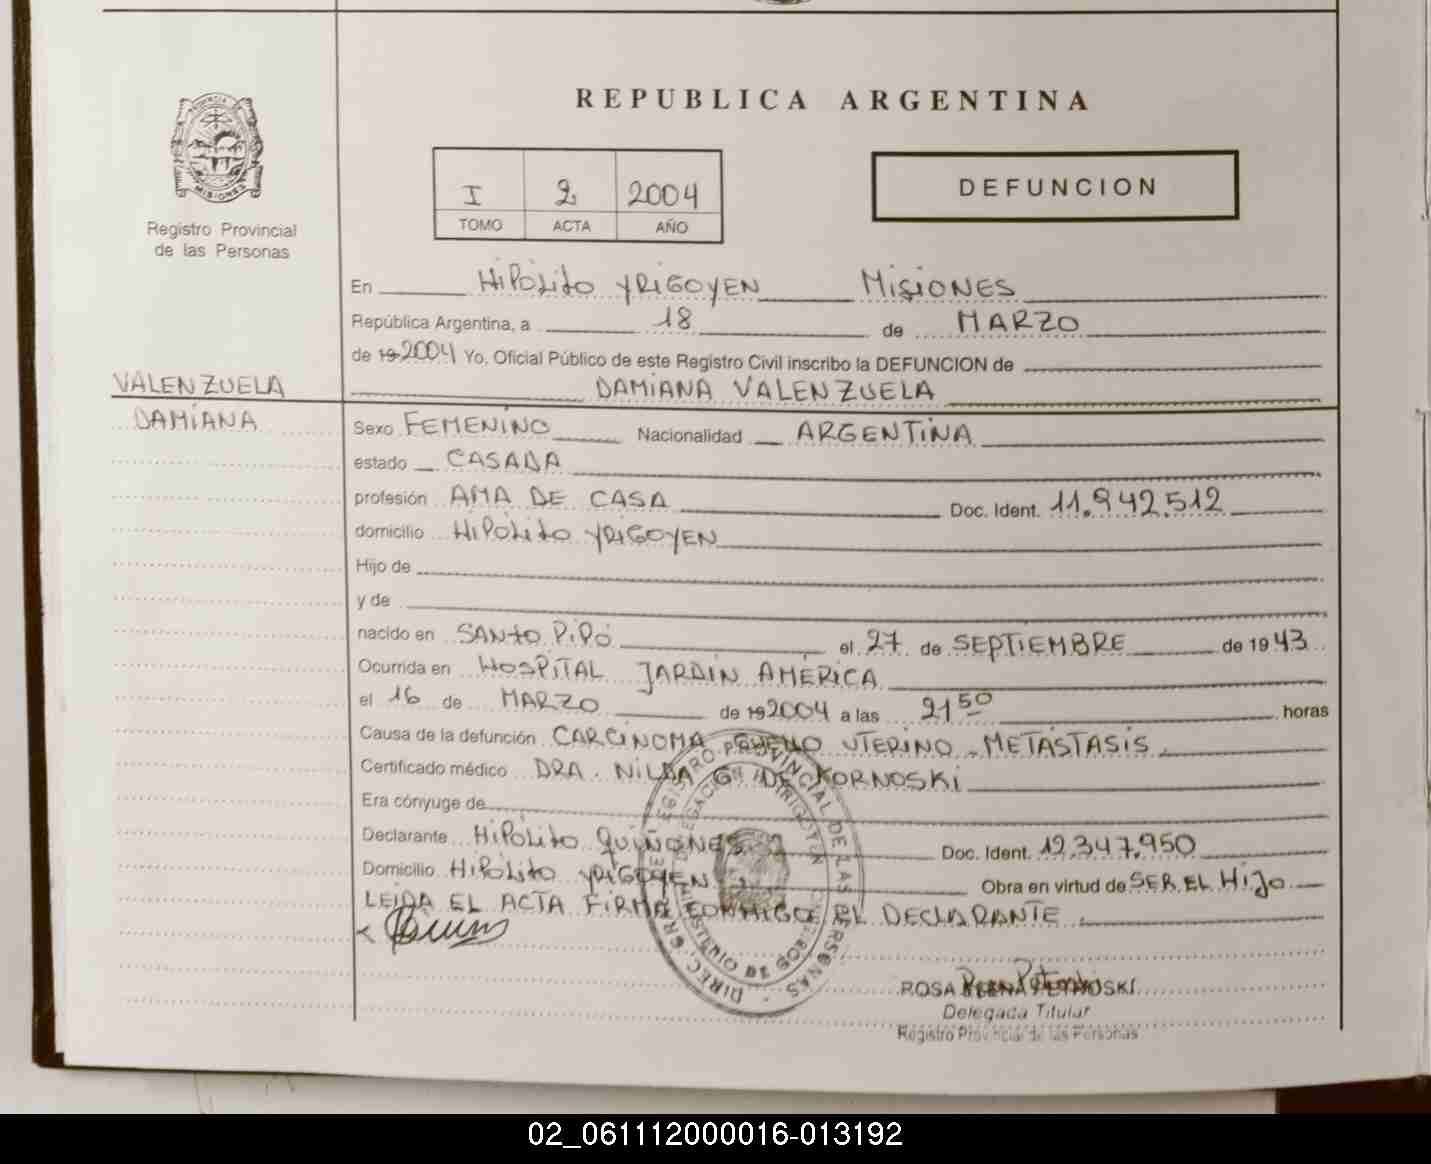 REPUBLICA ARGENTINA
PROVINCIA DE
MISIONES
Registro Provincial
de las Personas
I 2 2004
TOMO ACTA AÑO
DEFUNCION
En HIPÓLITO YRIGOYEN MISIONES
República Argentina, a 18 de MARZO
de 19 2004 Yo, Oficial Público de este Registro Civil inscribo la DEFUNCION de
VALENZUELA DAMIANA VALENZUELA
DAMIANA
Sexo FEMENINO Nacionalidad ARGENTINA
estado CASADA
profesión AMA DE CASA Doc. Ident. 11.942.512
domicilio HIPÓLITO YRIGOYEN
Hijo de
y de
nacido en SANTO PIPÓ el 27 de SEPTIEMBRE de 1943
Ocurrida en HOSPITAL JARDIN AMÉRICA
el 16 de MARZO de 19 2004 a las 21 50 horas
Causa de la defunción CARCINOMA CUELLO UTERINO - METÁSTASIS
Certificado médico DRA. NILDA G. DE KORNOSKI
Era cónyuge de
Declarante HIPÓLITO QUIÑONES Doc. Ident. 12.347.950
Domicilio HIPÓLITO YRIGOYEN Obra en virtud de SER EL HIJO
LEIDA EL ACTA FIRMA CONMIGO EL DECLARANTE
DIREC. GRAL. DE REGISTRO PROVINCIAL DE LAS PERSONAS
MINISTERIO DE GOBIERNO
ROSA ELENA PETROSKI
Delegada Titular
Registro Provincial de las Personas
02_061112000016-013192